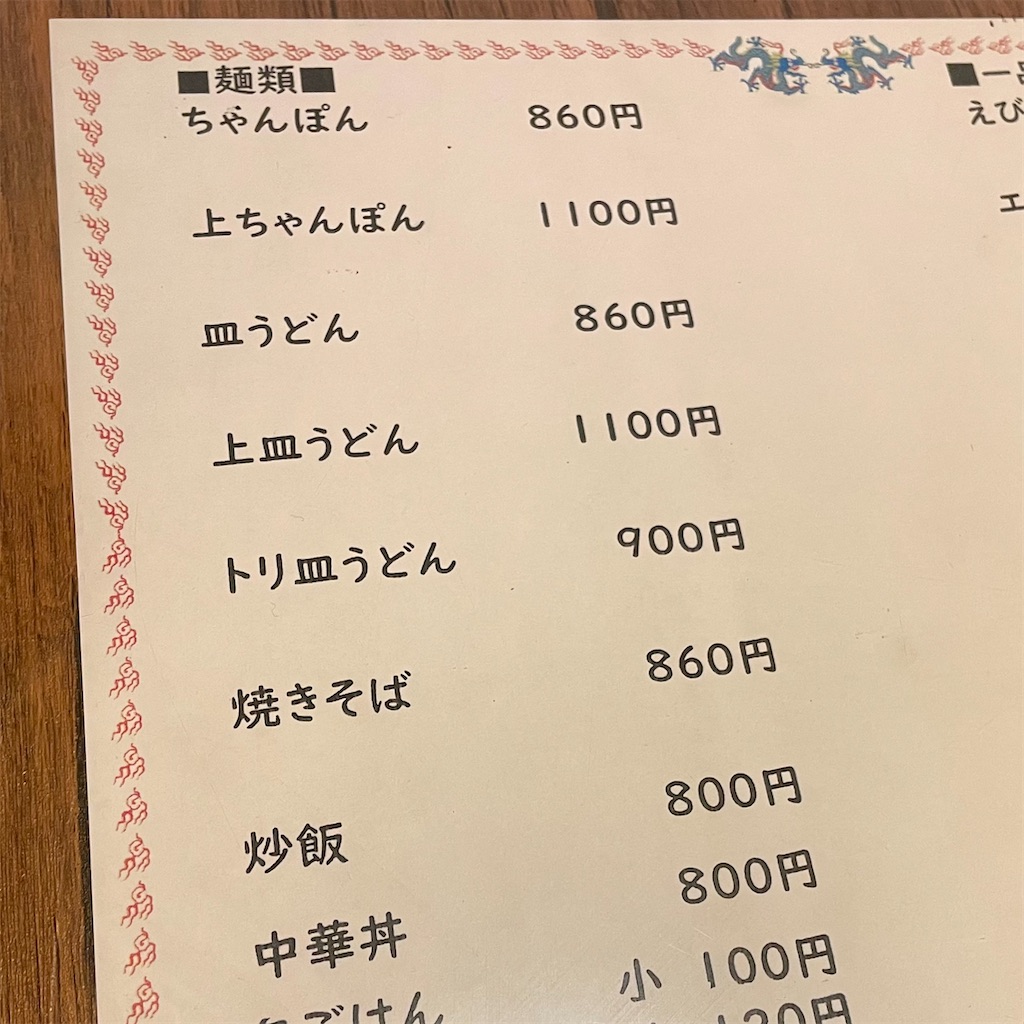 ■麺類■
ちゃんぽん 860円
上ちゃんぽん 1100円
皿うどん 860円
上皿うどん 1100円
トリ皿うどん 900円
焼きそば 860円
炒飯 800円
中華丼 800円
ごはん 小 100円
■一
えび
エ